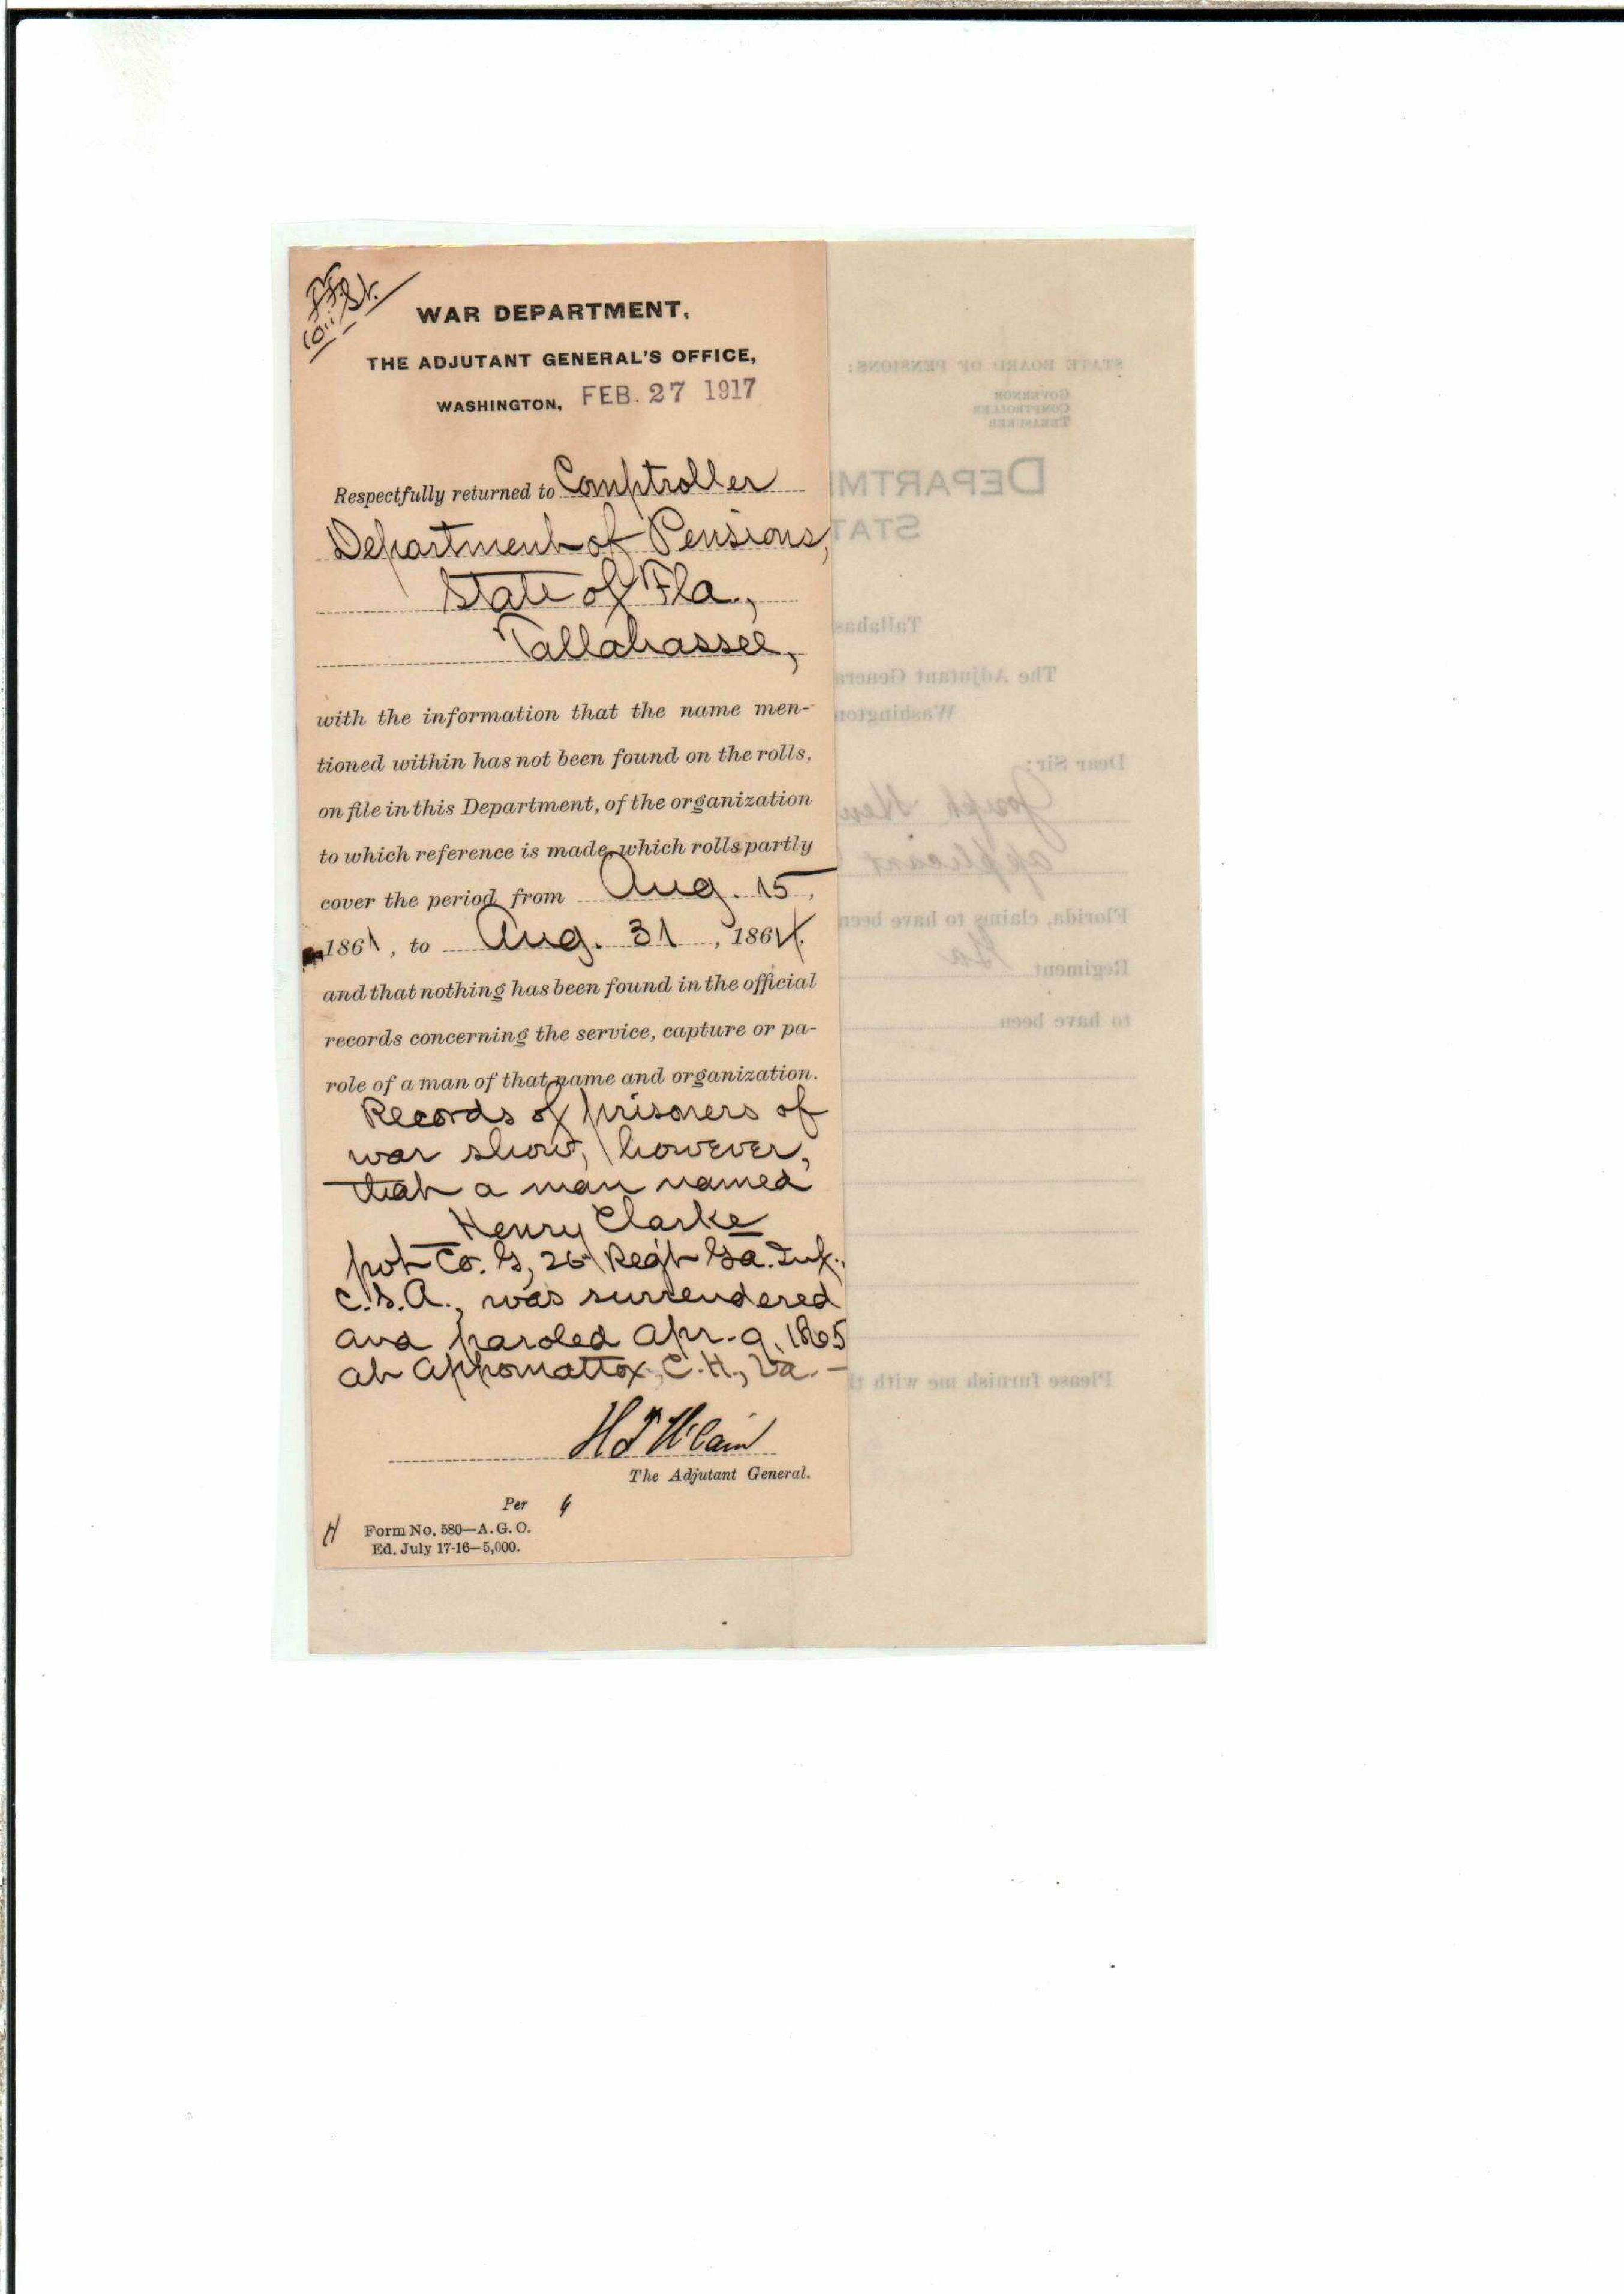 WAR DEPARTMENT,
THE ADJUTANT GENERAL'S OFFICE,
WASHINGTON, FEB. 27 1917
Respectfully returned to Comptroller
Department of Pensions,
State of Fla.,
Tallahassee,
with the information that the name men-
tioned within has not been found on the rolls,
on file in this Department, of the organization
to which reference is made, which rolls partly
cover the period from Aug. 15,
1861, to Aug. 31, 1864,
and that nothing has been found in the official
records concerning the service, capture or pa-
role of a man of that name and organization.
Records of prisoners of
war show, however,
that a man named
Henry Clarke
pvt Co. G, 26 Regt Ga. Inf.,
C.S.A., was surrendered
and paroled Apr. 9, 1865
at Appomattox, C.H., Va. -
The Adjutant General.
Per
H Form No. 580—A. G. O.
Ed. July 17-16—5,000.
STATE BOARD OF PENSIONS:
GOVERNOR
COMPTROLLER
TREASURER
DEPARTM
STAT
Tallahas
The Adjutant Genera
Washington
Dear Sir:
Joseph Hen
applicant
Florida, claims to have been
Regiment Ga
to have been
Please furnish me with th